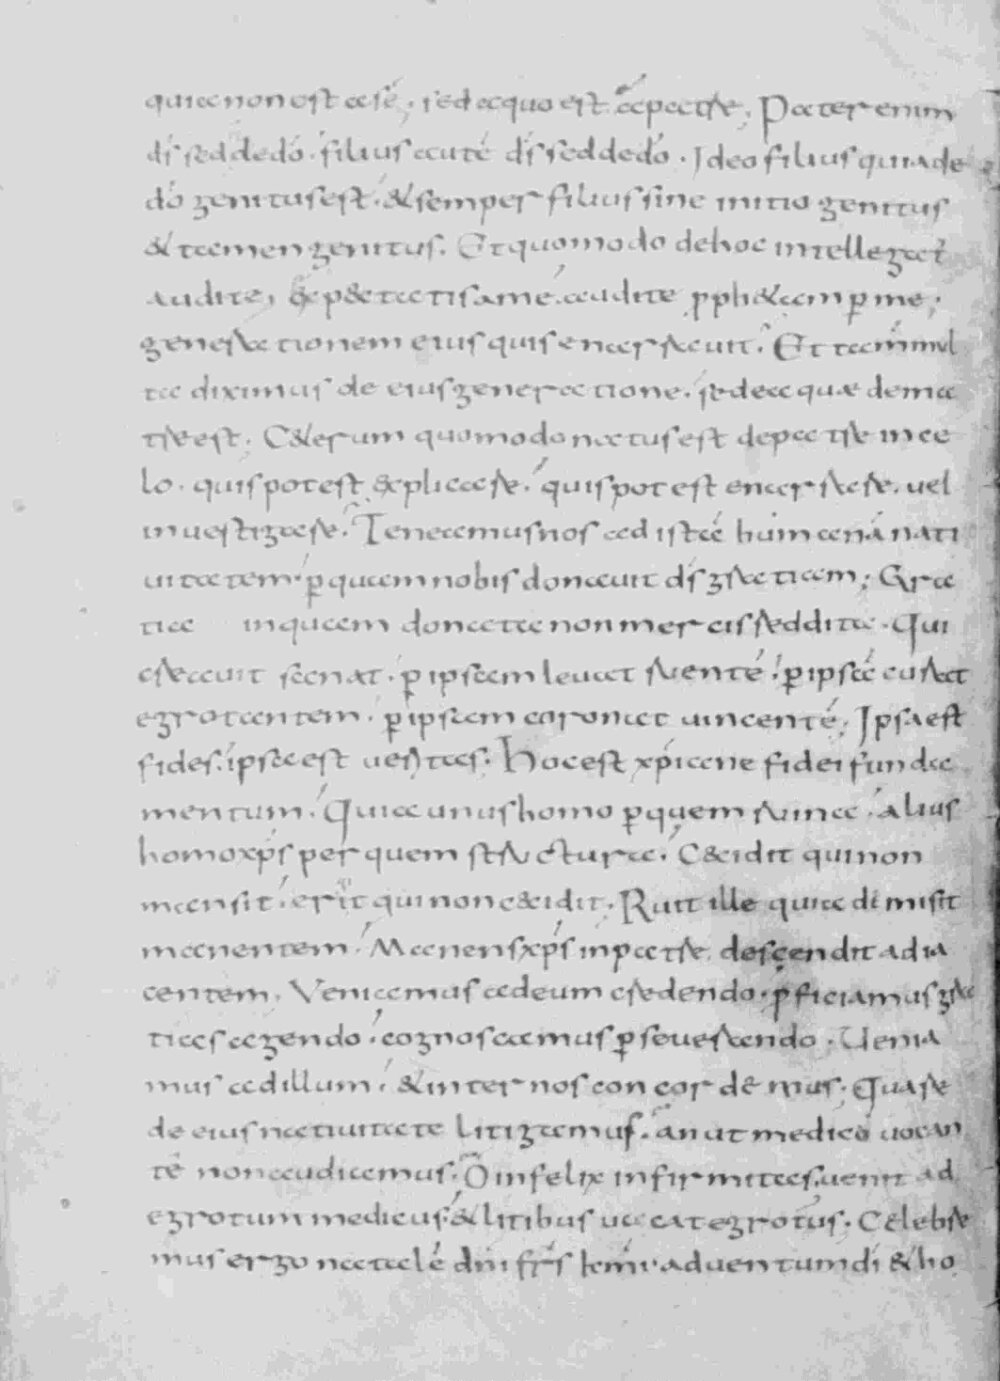 quia non est a sé, sed a quo est. a patre; Pater enim
ds̄ sed dedō. filius auté ds̄ sed dedō. Ideo filius quia de
dō genitus est. & semper filius sine initio genitus
& tamen genitus. Et quomodo de hoc intellegat̄
audite, exp&ctatis a me. audite pph&am p̱ me;
generationem eius quis enarrauit. Et tam̄ mul
ta diximus de eius generatione. sed ea quæ de ma
tre est. C&erum quomodo natus est de patre in ce
lo. quis potest explicare. quis potest enarrare. uel
inuestigare. Teneamus nos ad istā humanā nati
uitatem. p̱ quam nobis donauit ds̄ gratiam; Gra
tia in quam donata non mercis reddita. Qui
creauit sanat. p̱ ipsam leuat ruenté. p̱ ipsā curat
egrotantem. p̱ ipsam coronat uincenté; Ipsa est
fides. ipsa est ueritas. Hoc est xp̄iane fidei funda
mentum. Quia unus homo p̱ quem ruina. alius
homo xp̄s per quem structura. C&idit qui non
mansit. erit qui non c&idit. Ruit ille quia dimisit
manentem. Manens xp̄s in patre. descendit ad ia
centem. Veniamus ad eum credendo. p̱ficiamus gra
tias agendo. cognoscamus p̱seuerando. Uenia
mus ad illum. & inter nos concordemus. Quare
de eius natiuitate litigamus. an ut medicō uocan
té non audiamus. O infelix infirmitas. uenit ad
egrotum medicus. & litibus uacat egrotus. Celebre
mus ergo natalé dn̄i frs̄ kmi. aduentum dī & ho